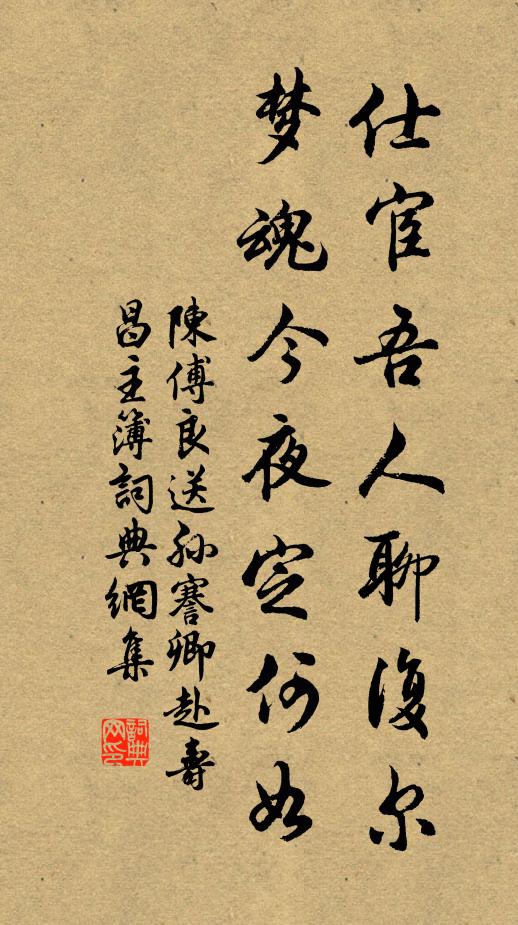 仕宦吾人聊復尔
梦魂今夜定何如
陳傅良送孙謇卿赴壽
昌主簿詞典網集
詞典网印